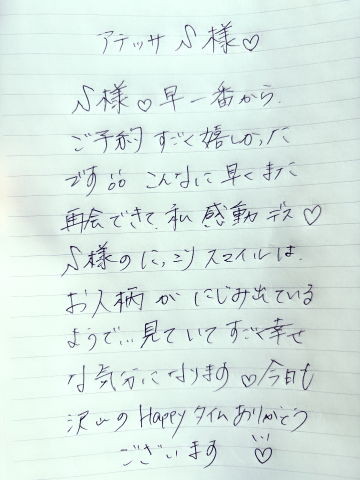 アテッサ S様♡
S様♡早一番から
ご予約すごく嬉しかった
です こんなに早くまた
再会できて、私感動デス♡
S様のにっこりスマイルは、
お人柄がにじみ出ている
ようで…見ていてすごく幸せ
な気分になります♡今日も
沢山のHappyタイムありがとう
ございます♡